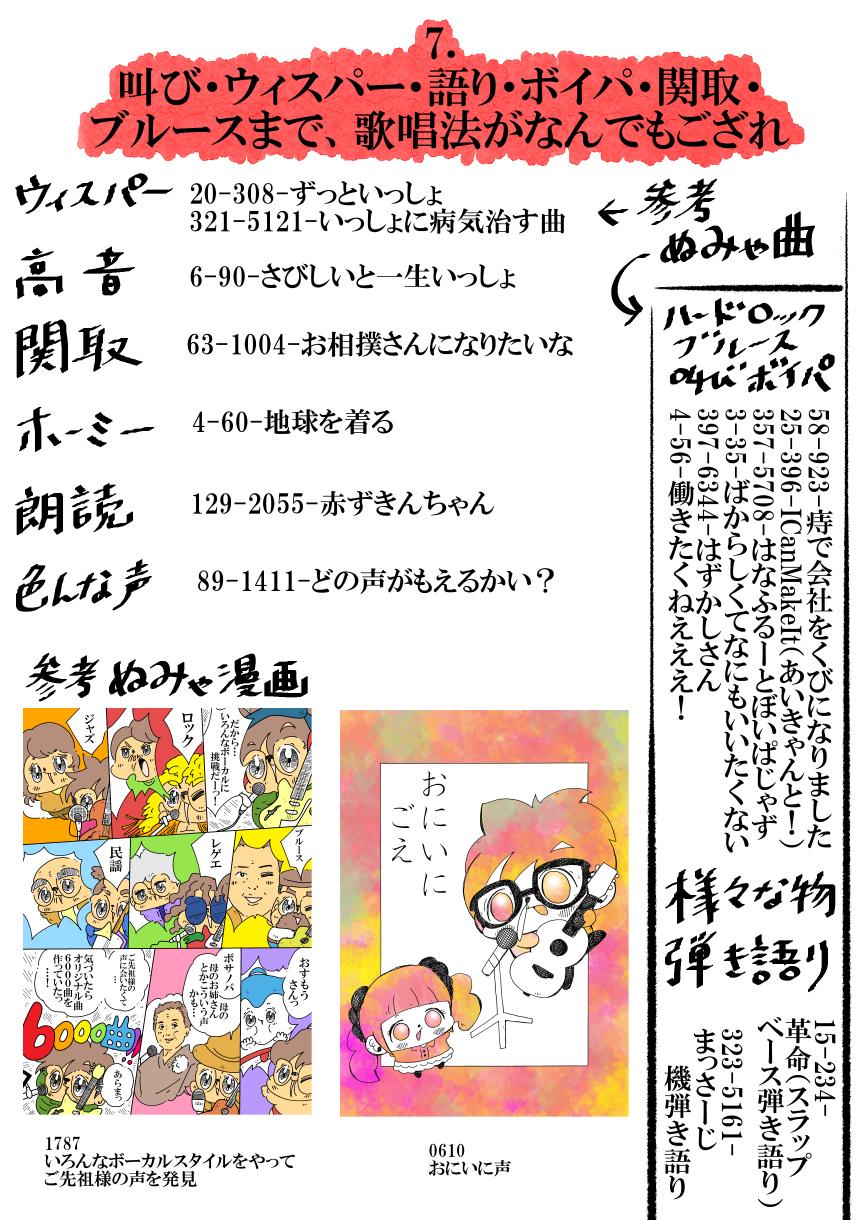 7.
叫び・ウィスパー・語り・ボイパ・関取・
ブルースまで、歌唱法がなんでもござれ
ウィスパー
20-308-ずっといっしょ
321-5121-いっしょに病気治す曲
←参考
ぬみゃ曲
高音
6-90-さびしいと一生いっしょ
関取
63-1004-お相撲さんになりたいな
ホーミー
4-60-地球を着る
朗読
129-2055-赤ずきんちゃん
色んな声
89-1411-どの声がもえるかい？
ハードロック
ブルース
叫びボイパ
58-923-痔で会社をくびになりました
25-396-ICanMakeIt(あいきゃんと!)
357-5708-はなふるーとぼいぱじゃず
3-35-ばからしくてなにもいいたくない
397-6344-はずかしさん
4-56-働きたくねえええ！
様々な物
弾き語り
15-234-
革命(スラップ
ベース弾き語り)
323-5161-
まっさーじ
機弾き語り
参考ぬみゃ漫画
だから…
いろんなボーカルに
挑戦だーっ!
ロック
ジャズ
ブルース
レゲエ
民謡
おすもう
さんっ
ボサノバ
母の
母のお姉さん
とかこういう声
かも…
ご先祖様の
声に会いたくて
…
気づいたら
オリジナル曲
6000曲を
作っていた
……
6000曲!!
あらまっ
1787
いろんなボーカルスタイルをやって
ご先祖様の声を発見
おにいに
ごえ
0610
おにいに声